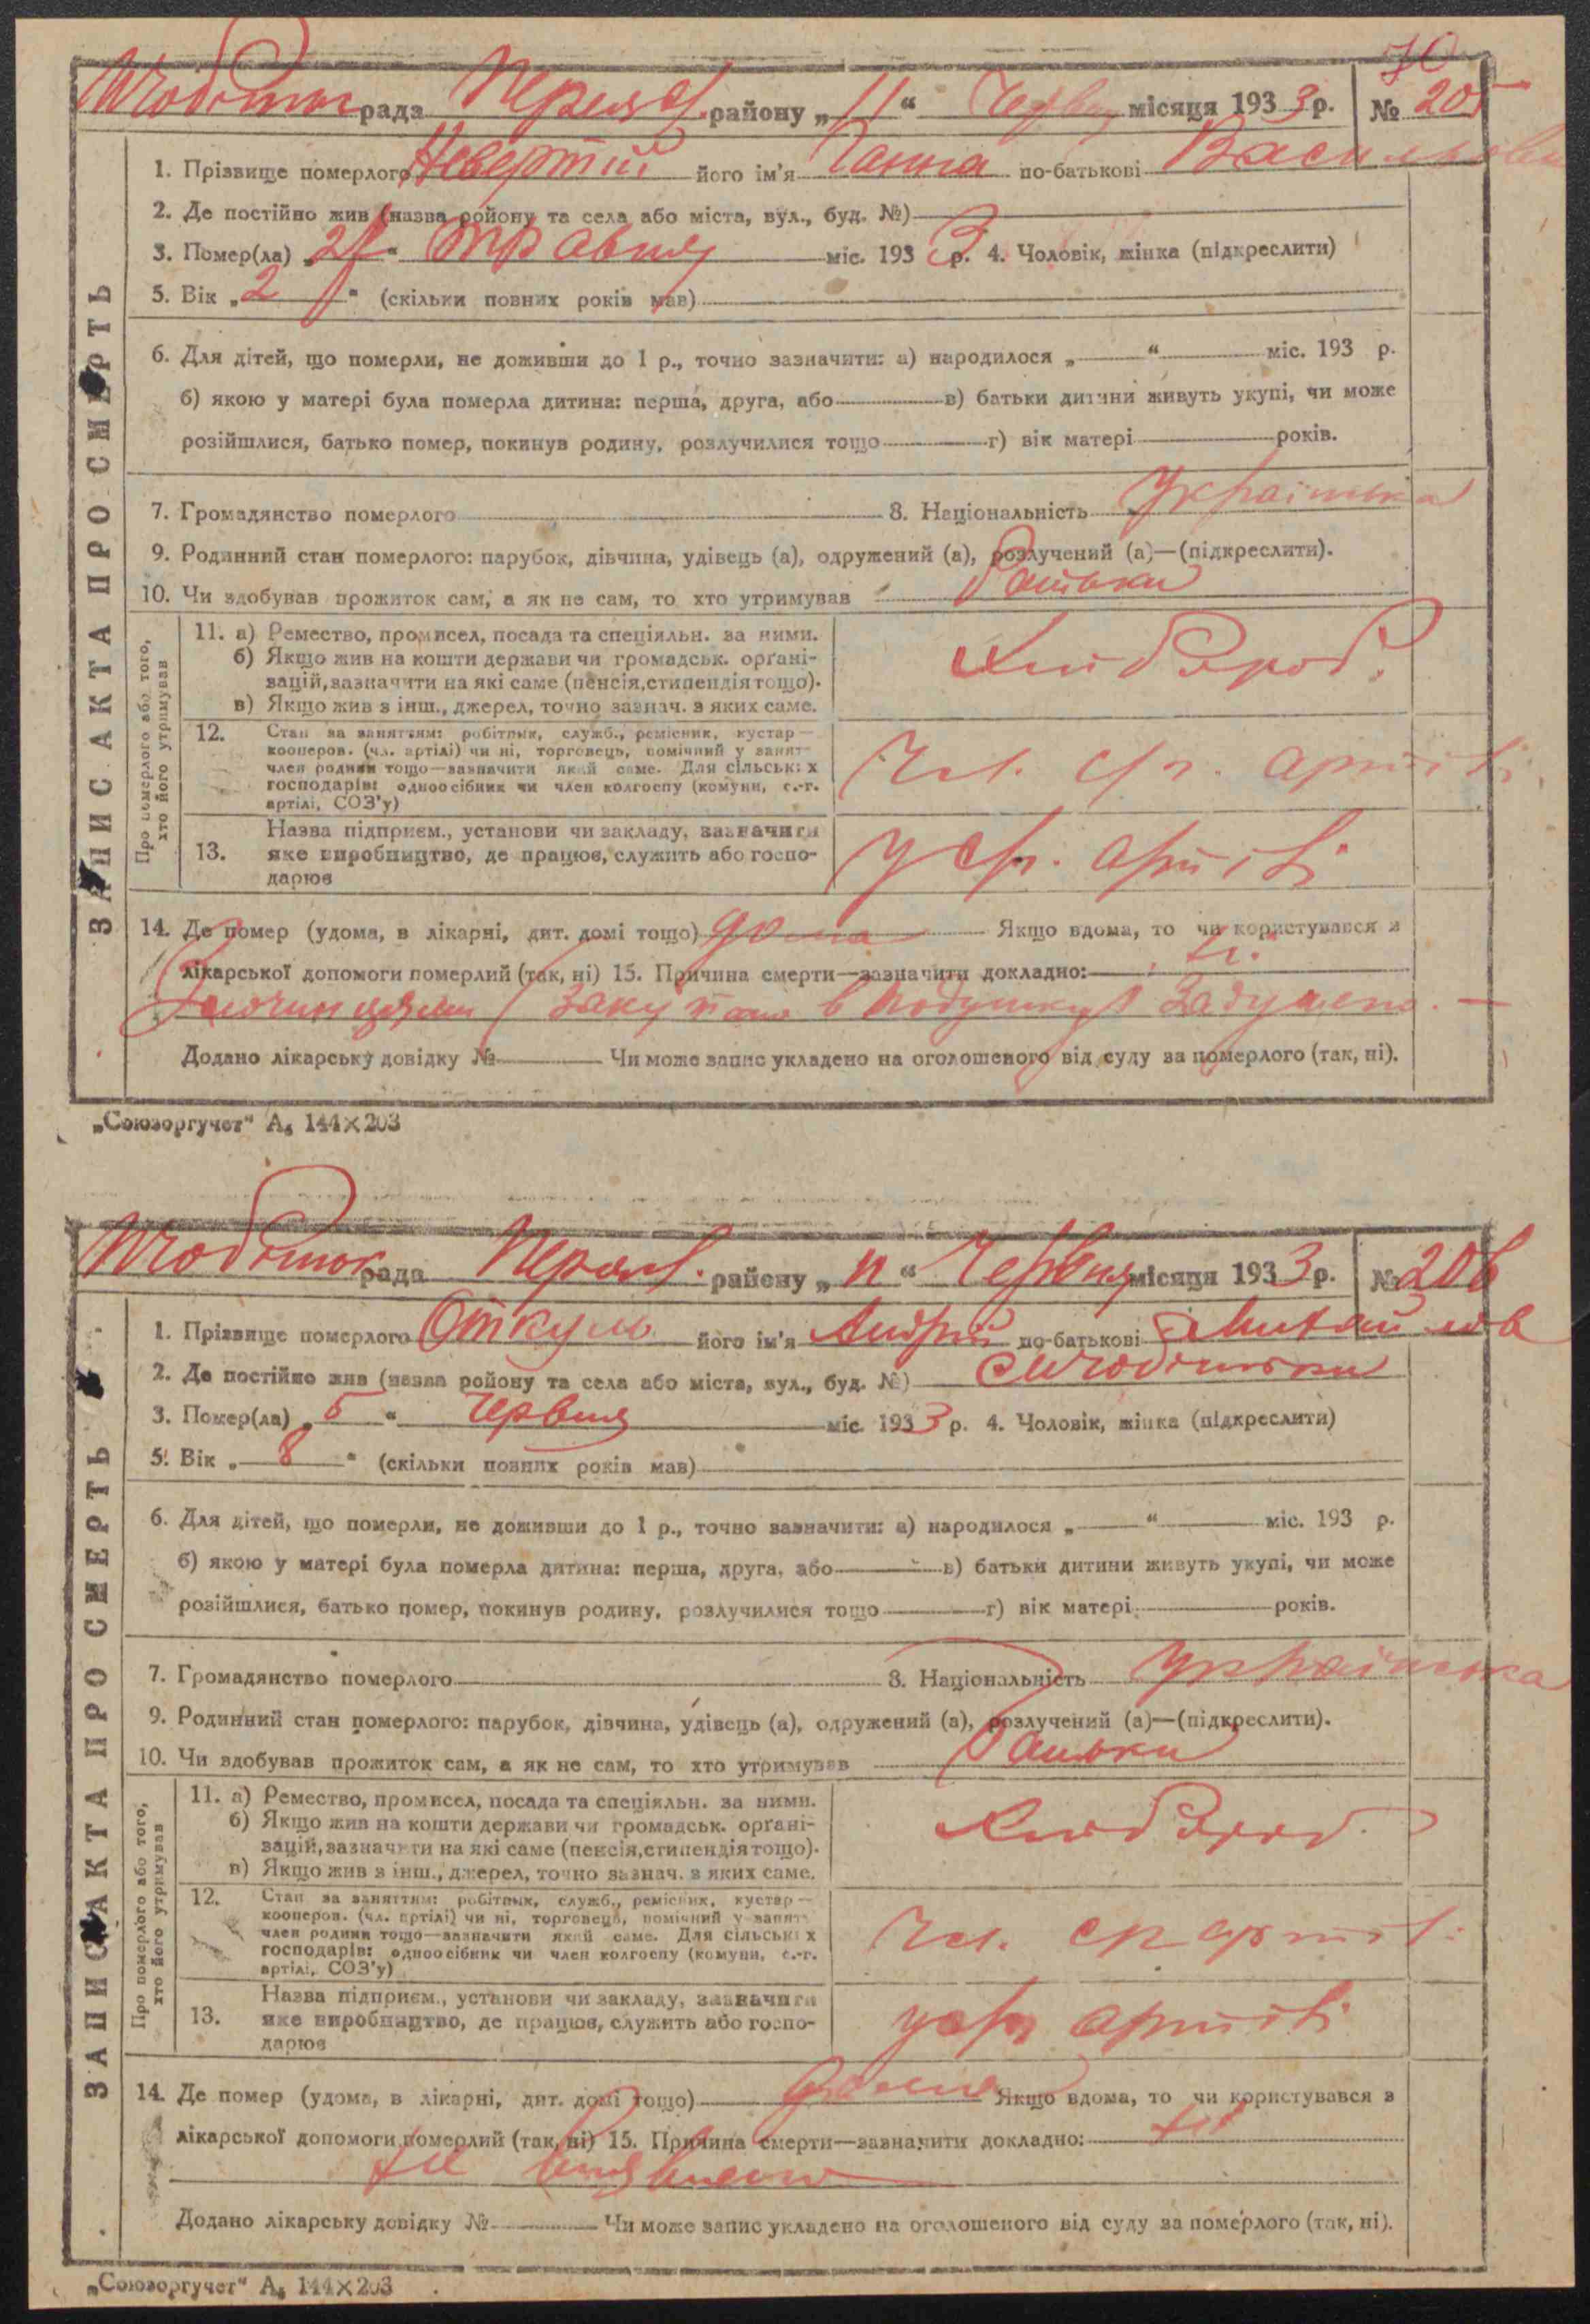 70
рада район у „11“ місяця 1933 р. № 205
1. Прізвище померлого його ім'я Ганна по-батькові
2. Де постійно жив (назва ройону та села або міста, вул., буд. №)
3. Помер(ла) „ “ травня міс. 1933 р. 4. Чоловік, жінка (підкреслити)
5. Вік „2“ (скільки повних років мав)
6. Для дітей, що померли, не доживши до 1 р., точно зазначити: а) народилося „ “ міс. 193 р.
б) якою у матері була померла дитина: перша, друга, або в) батьки дитини живуть укупі, чи може
розійшлися, батько помер, покинув родину, розлучилися тощо г) вік матері років.
7. Громадянство померлого 8. Національність українська
9. Родинний стан померлого: парубок, дівчина, удівець (а), одружений (а), розлучений (а)—(підкреслити).
10. Чи здобував прожиток сам, а як не сам, то хто утримував батьки
ЗАПИС АКТА ПРО СМЕРТЬ
Про померлого або того, хто його утримував
11. а) Ремество, промисел, посада та спеціяльн. за ними.
б) Якщо жив на кошти держави чи громадськ. орґані-
зацій, зазначити на які саме (пенсія, стипендія тощо).
в) Якщо жив з інш., джерел, точно зазнач. з яких саме.
Хлібороб.
12. Стан за заняттям: робітник, служб., ремісник, кустар—
кооперов. (чл. артілі) чи ні, торговець, помічний у занят-
член родини тощо—зазначити який саме. Для сільських
господарів: одноосібник чи член колгоспу (комуни, с.-г.
артілі, СОЗ'у)
Чл. с/г. артілі
13. Назва підприєм., установи чи закладу, зазначити
яке виробництво, де працює, служить або госпо-
дарює
у с/г. артілі
14. Де помер (удома, в лікарні, дит. домі тощо) дома Якщо вдома, то чи користувався з
лікарської допомоги померлий (так, ні) 15. Причина смерти—зазначити докладно: ні
в подушку задушено.
Додано лікарську довідку № Чи може запис укладено на оголошеного від суду за померлого (так, ні).
„Союзоргучет“ А₅ 144×203
рада району „11“ Червня місяця 1933 р. № 206
1. Прізвище померлого Откуль його ім'я Андрій по-батькові
2. Де постійно жив (назва ройону та села або міста, вул., буд. №)
3. Помер(ла) „5“ Червня міс. 1933 р. 4. Чоловік, жінка (підкреслити)
5. Вік „8“ (скільки повних років мав)
6. Для дітей, що померли, не доживши до 1 р., точно зазначити: а) народилося „ “ міс. 193 р.
б) якою у матері була померла дитина: перша, друга, або в) батьки дитини живуть укупі, чи може
розійшлися, батько помер, покинув родину, розлучилися тощо г) вік матері років.
7. Громадянство померлого 8. Національність українська
9. Родинний стан померлого: парубок, дівчина, удівець (а), одружений (а), розлучений (а)—(підкреслити).
10. Чи здобував прожиток сам, а як не сам, то хто утримував батьки
ЗАПИС АКТА ПРО СМЕРТЬ
Про померлого або того, хто його утримував
11. а) Ремество, промисел, посада та спеціяльн. за ними.
б) Якщо жив на кошти держави чи громадськ. орґані-
зацій, зазначити на які саме (пенсія, стипендія тощо).
в) Якщо жив з інш., джерел, точно зазнач. з яких саме.
Хлібороб.
12. Стан за заняттям: робітник, служб., ремісник, кустар—
кооперов. (чл. артілі) чи ні, торговець, помічний у занят-
член родини тощо—зазначити який саме. Для сільських
господарів: одноосібник чи член колгоспу (комуни, с.-г.
артілі, СОЗ'у)
Чл. с/г артілі
13. Назва підприєм., установи чи закладу, зазначити
яке виробництво, де працює, служить або госпо-
дарює
у с/г артілі
14. Де помер (удома, в лікарні, дит. домі тощо) дома Якщо вдома, то чи користувався з
лікарської допомоги померлий (так, ні) 15. Причина смерти—зазначити докладно: ні
не виявлено
Додано лікарську довідку № Чи може запис укладено на оголошеного від суду за померлого (так, ні).
„Союзоргучет“ А₅ 144×203